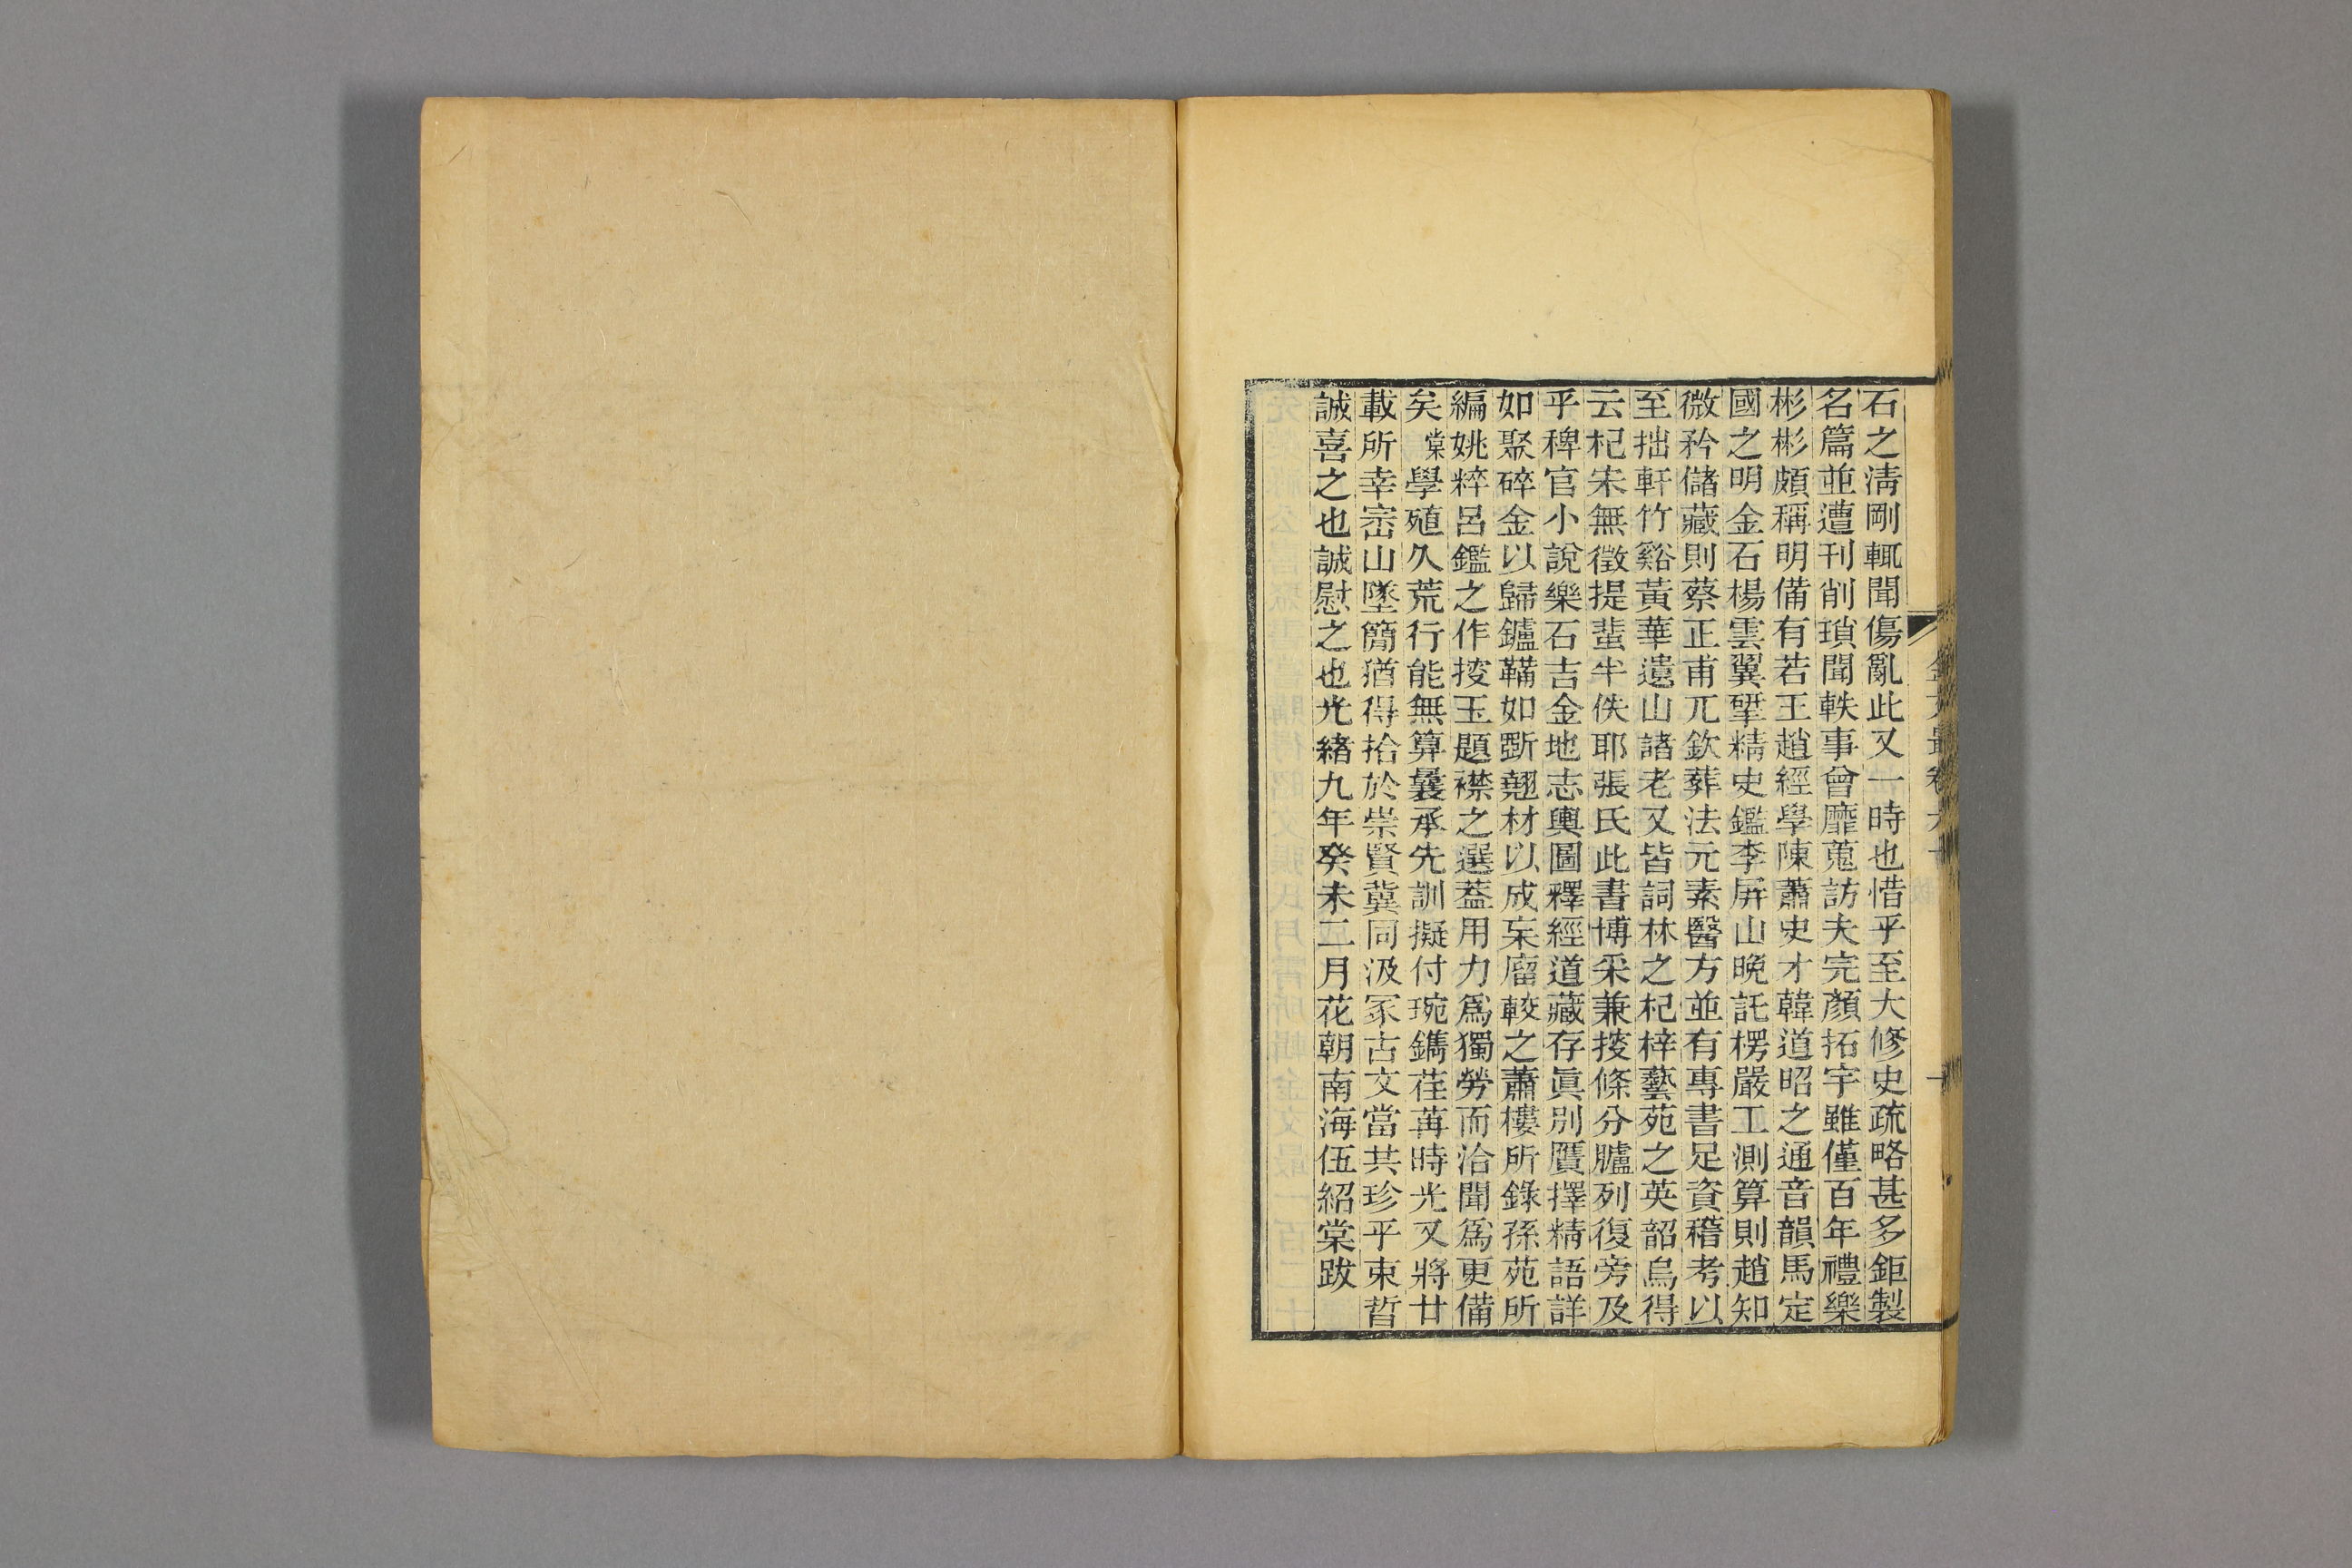 石之淸剛輒聞傷亂此又一時也惜乎至大修史疏略甚多鉅製
名篇並遭刊削瑣聞軼事曾靡蒐訪夫完顏拓宇雖僅百年禮樂
彬彬頗稱明備有若王趙經學陳蕭史才韓道昭之通音韻馬定
國之明金石楊雲翼揅精史鑑李屏山晚託楞嚴工測算則趙知
微矜儲藏則蔡正甫兀欽葬法元素醫方並有專書足資稽考以
至拙軒竹谿黃華遺山諸老又皆詞林之杞梓藝苑之英韶烏得
云杞宋無徵提蜚半佚耶張氏此書博采兼搜條分臚列復旁及
乎稗官小說樂石吉金地志輿圖釋經道藏存眞別贋擇精語詳
如聚碎金以歸鑪鞴如斲翹材以成杗廇較之蕭樓所錄孫苑所
編姚粹呂鑑之作搜玉題襟之選葢用力爲獨勞而洽聞爲更備
矣棠學殖久荒行能無算曩承先訓擬付琬鐫荏苒時光又將廿
載所幸崈山墜簡猶得拾於崇賢冀同汲冢古文當共珍乎束晳
誠喜之也誠慰之也光緖九年癸未二月花朝南海伍紹棠跋